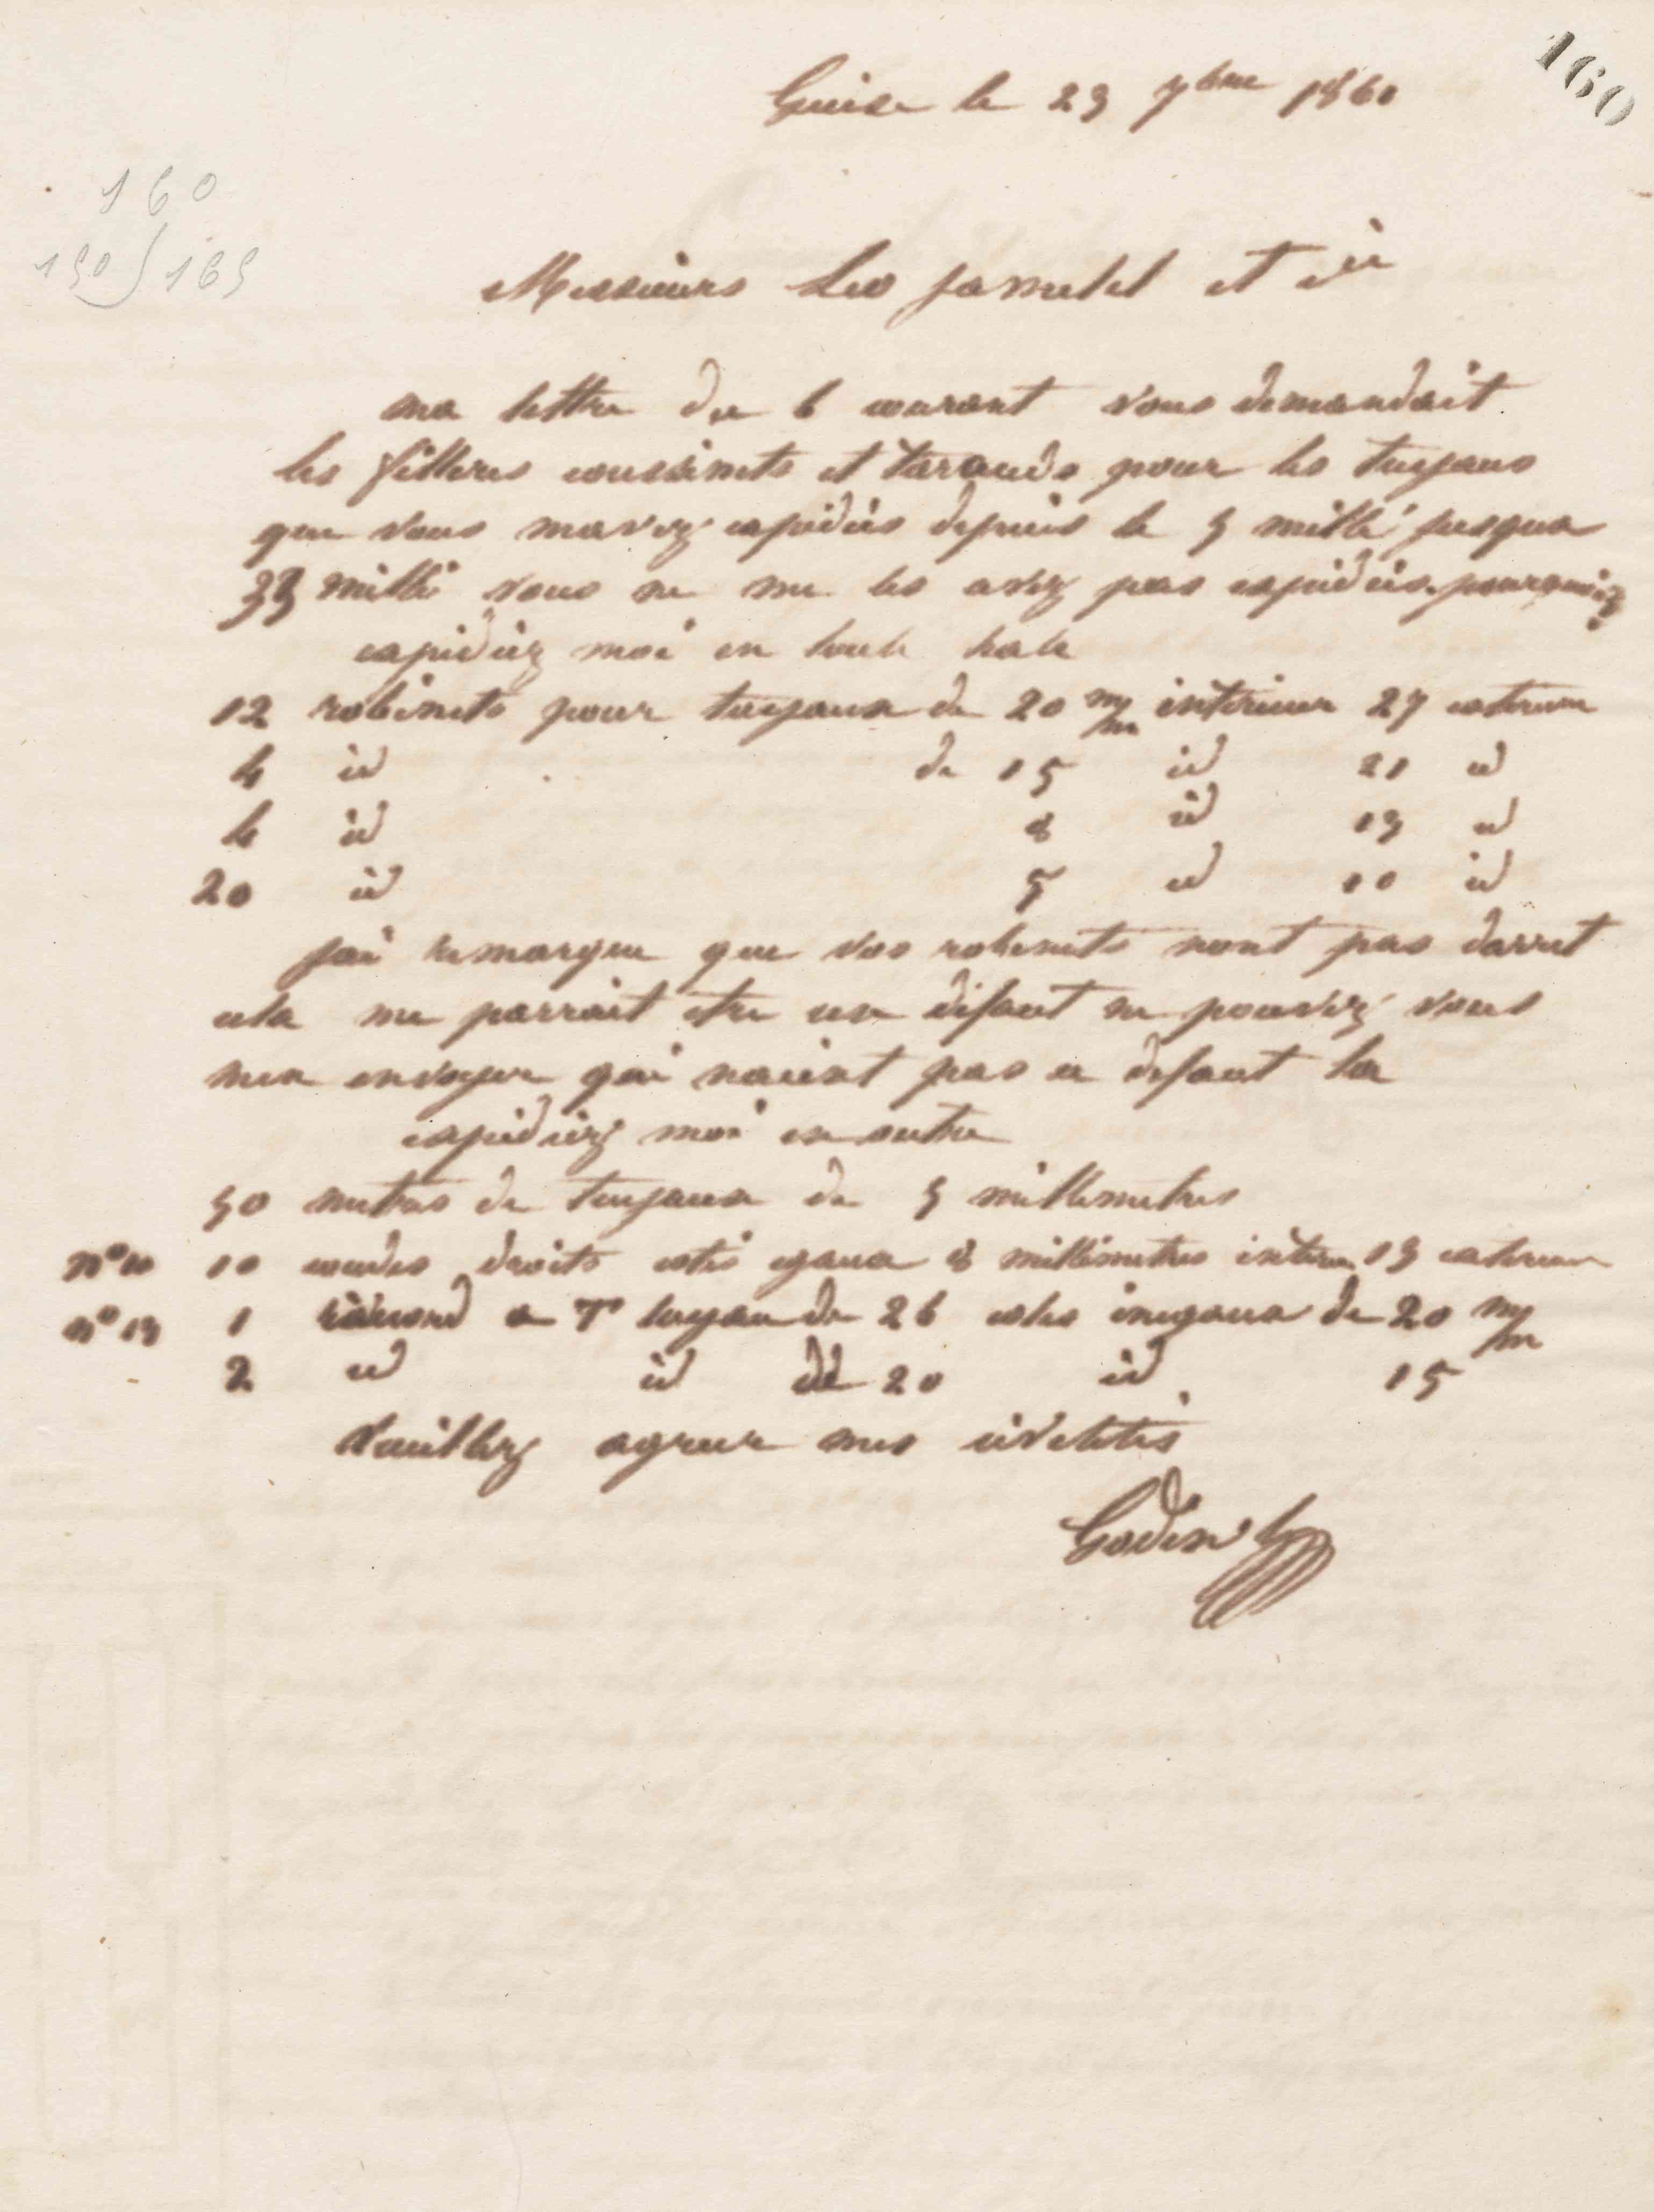 160
Guise le 23 7bre 1860
160
150 / 165
Messieurs Leo Jametel et cie
ma lettre du 6 courant vous demandait
les fillieres coussinets et tarauds pour les tuyaus
que vous mavez expédiés depuis le 5 milli jusqua
33 milli vous ne me les avez pas expédiés. pourquoi?
expédiez moi en toute hate
12 robinets pour tuyaux de 20 m/m interieur 27 exterieur
4 id de 15 id 21 id
4 id 8 id 13 id
20 id 5 id 10 id
jai remarque que vos robinets nont pas darret
cela me parrait etre un défaut ne pouvez vous
men envoyer qui naient pas ce defaut la
expediez moi en outre
50 metres de tuyaux de 5 millimetres
n° 10 10 coudes droits cotés egaux 8 millimetres interieur 13 exterieur
n° 13 1 raccord a T tuyau de 26 cotes inegaux de 20 m/m
2 id id de 20 id 15
Veuillez agreer mes civilités
Godin